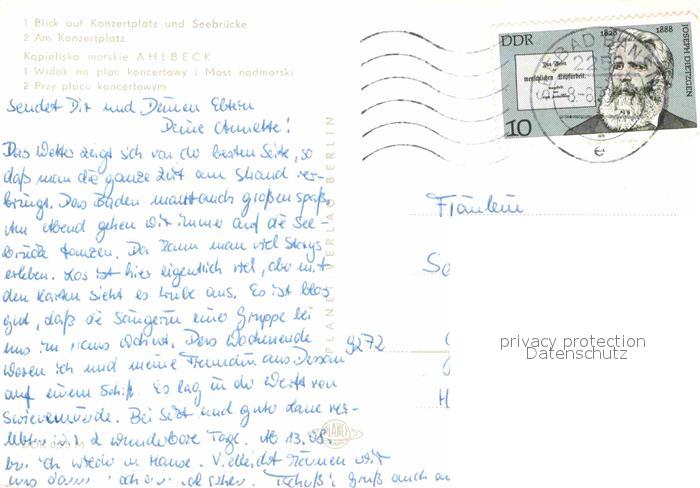 1 Blick auf Konzertplatz und Seebrücke
2 Am Konzertplatz
Kąpielisko morskie AHLBECK
1 Widok na plac koncertowy i Most nadmorski
2 Przy placu koncertowym
Sendet Dir und Deinen Eltern
Deine Annette!
Das Wetter zeigt sich von der besten Seite, so
daß man die ganze Zeit am Strand ver-
bringt. Das Baden macht auch großen Spaß.
Am Abend gehen wir immer auf die See-
brücke tanzen. Da kann man viel
erleben. Los ist hier eigentlich viel, aber mit
den Karten sieht es trübe aus. Es ist bloß
gut, daß die Sängerin einer Gruppe bei
uns im Haus wohnt. Das Wochenende
waren ich und meine Freundin aus Dessau
auf einem Schiff. Es lag in der Werft von
Swinemünde. Bei Sekt und guter Laune ver-
lebten wir 2 wunderbare Tage. Ab 13.08.
bin ich wieder in Hause. Vielleicht können wir
uns dann sehen. Tschüß! Gruß auch an
PLANET VERLAG BERLIN
PLANET
DDR
1828 1888
JOSEPH DIETZGEN
menschlichen Kopfarbeit
10
225
-8-8
e
Fräulein
9272
H
privacy protection
Datenschutz